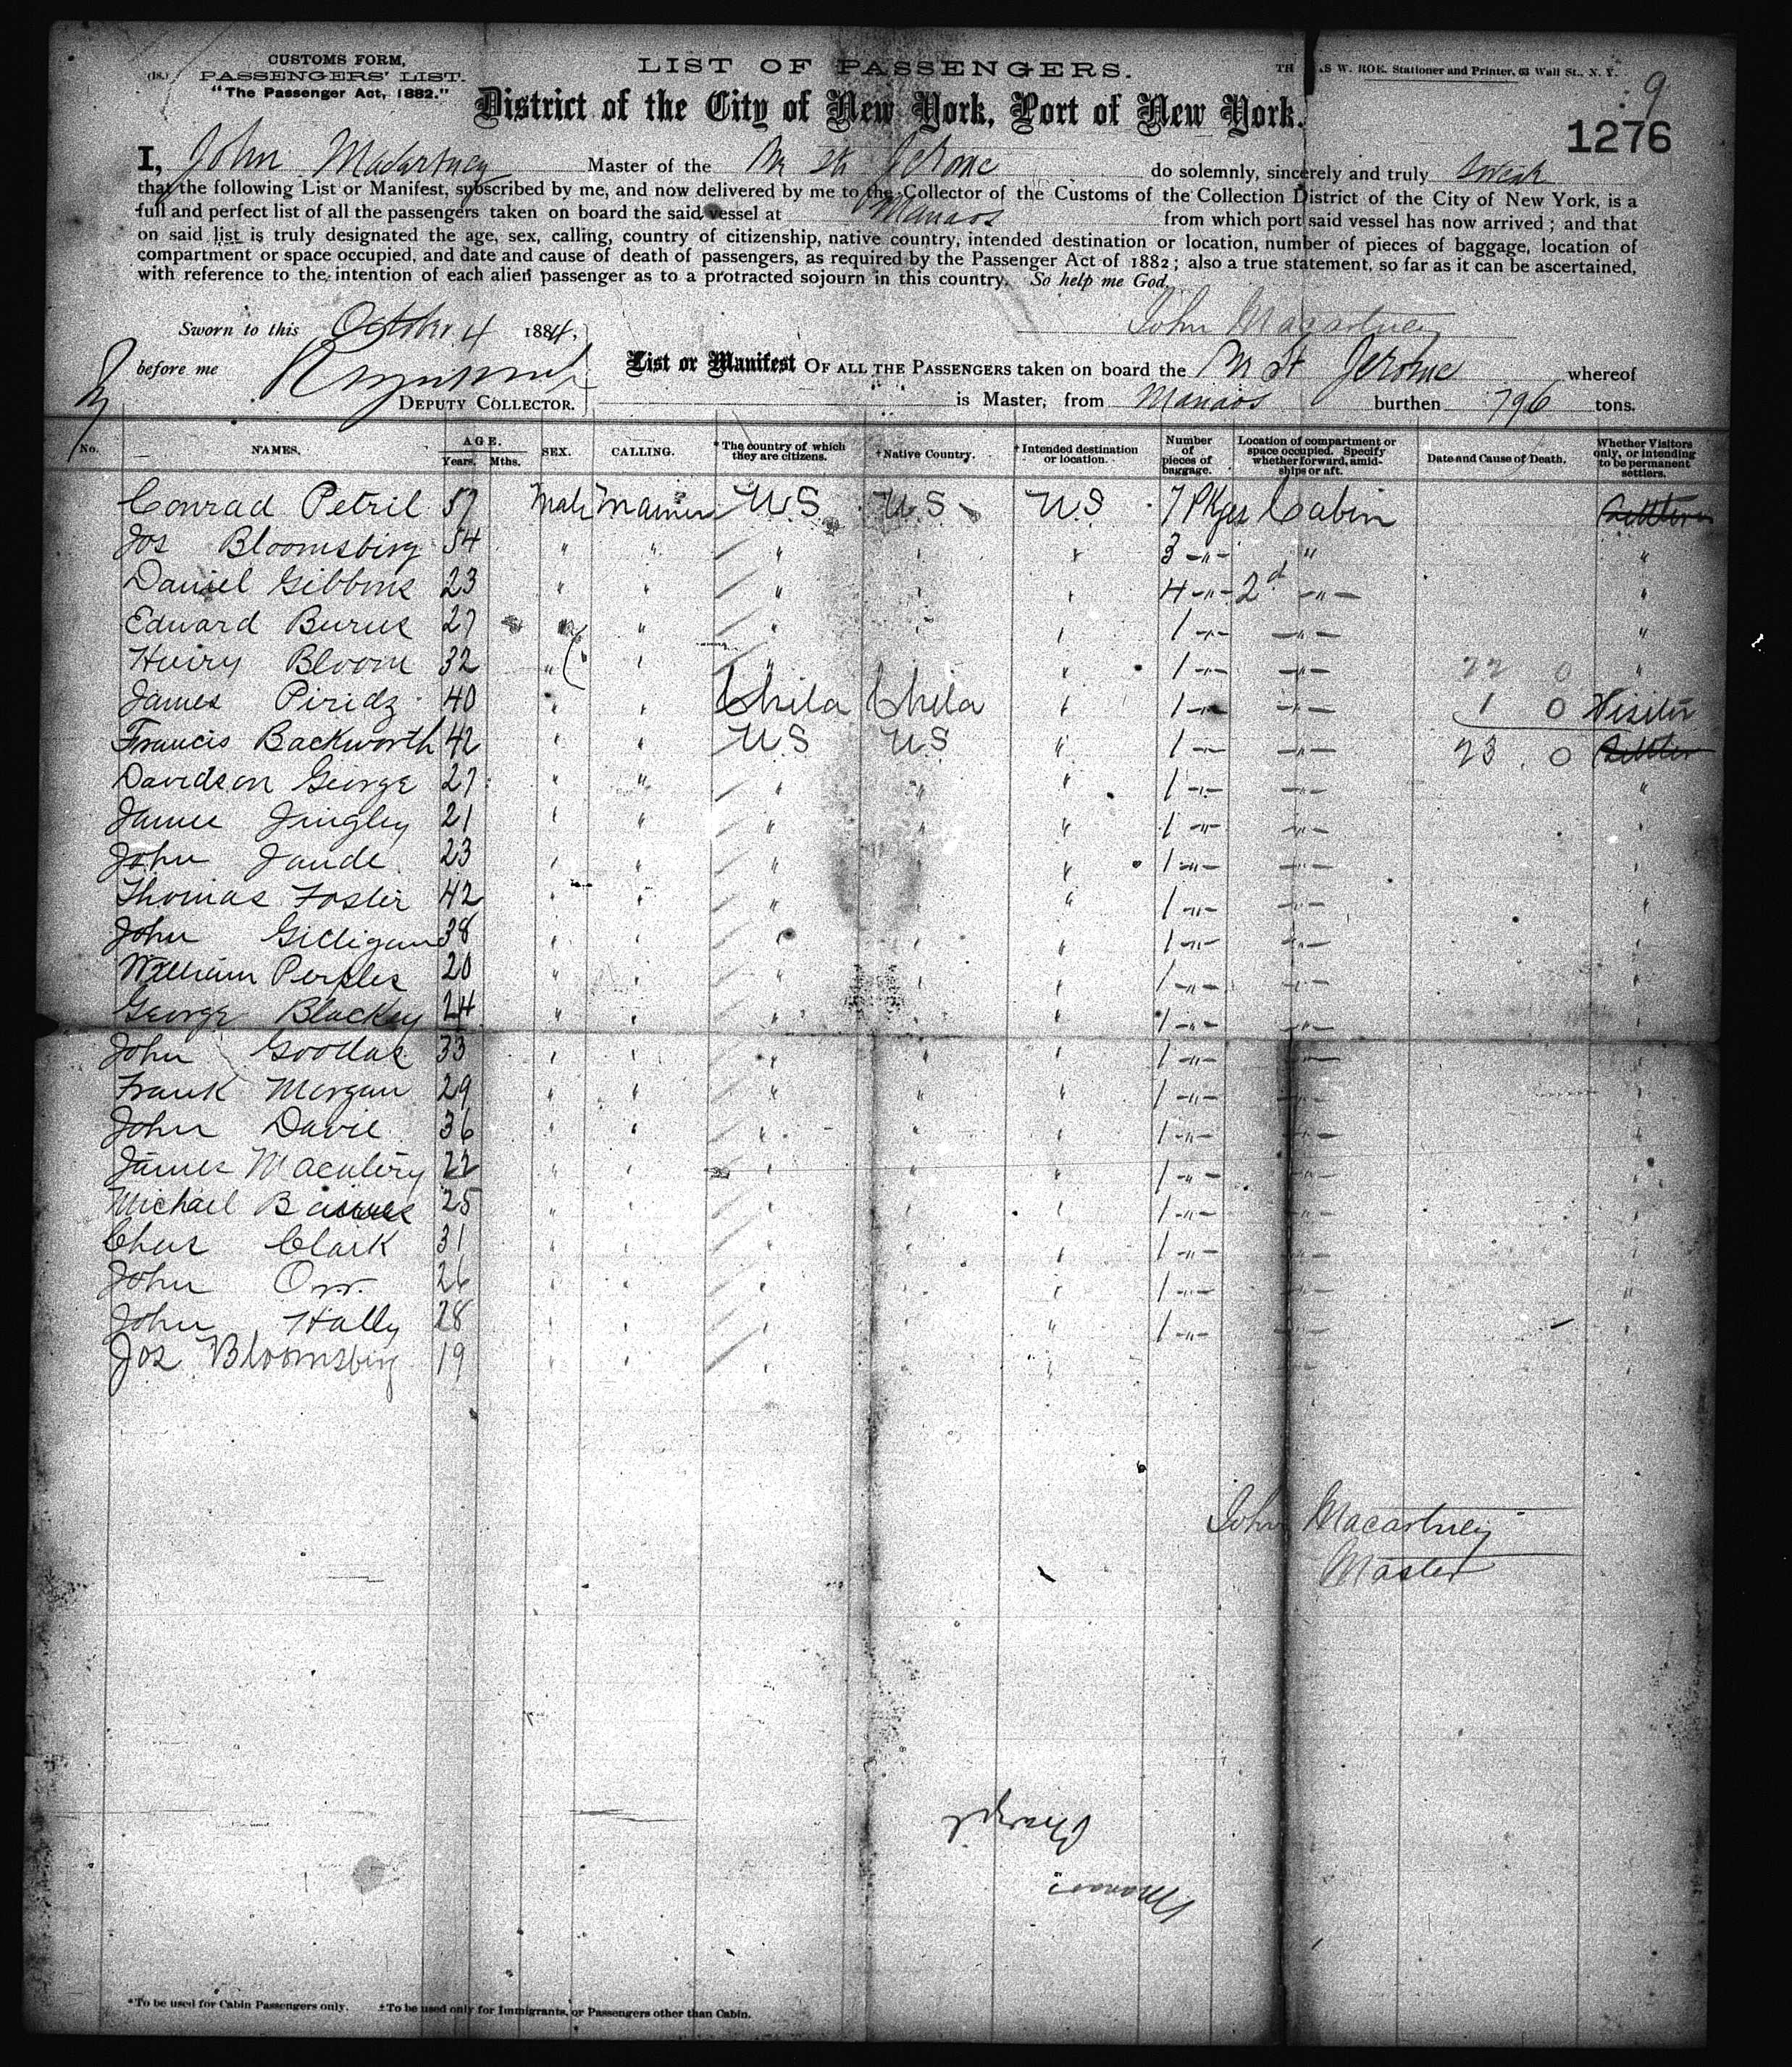 CUSTOMS FORM,
(18.) PASSENGERS' LIST.
"The Passenger Act, 1882."
LIST OF PASSENGERS.
S W. ROE. Stationer and Printer, 63 Wall St., N. Y.
9
District of the City of New York, Port of New York.
1276
I, John Macartney Master of the Br Str Jerome do solemnly, sincerely and truly swear
that the following List or Manifest, subscribed by me, and now delivered by me to the Collector of the Customs of the Collection District of the City of New York, is a
full and perfect list of all the passengers taken on board the said vessel at Manaos from which port said vessel has now arrived ; and that
on said list is truly designated the age, sex, calling, country of citizenship, native country, intended destination or location, number of pieces of baggage, location of
compartment or space occupied, and date and cause of death of passengers, as required by the Passenger Act of 1882 ; also a true statement, so far as it can be ascertained,
with reference to the intention of each alien passenger as to a protracted sojourn in this country. So help me God.
John Macartney
Sworn to this October 4 1884.
before me
DEPUTY COLLECTOR.
List or Manifest OF ALL THE PASSENGERS taken on board the Br St Jerome whereof
is Master, from Manaos burthen 796 tons.
No. NAMES. AGE. Years. Mths. SEX. CALLING. *The country of which they are citizens. †Native Country. †Intended destination or location. Number of pieces of baggage. Location of compartment or space occupied. Specify whether forward, amidships or aft. Date and Cause of Death. Whether Visitors only, or intending to be permanent settlers.
Conrad Petril 57 Male Mariner U.S U.S U.S 7 Pkges Cabin Settler
Jos Bloomsbirg 54 " " " " " 3 -"- " "
Daniel Gibbons 23 " " " " " 4 -"- 2d -"- "
Edward Burns 27 " " " " 1 -"- -"- "
Henry Bloom 32 " " " " 1 -"- -"- 22 0 "
James Piridz 40 " " Chila Chila " 1 -"- -"- 1 0 Visitor
Francis Backworth 42 " " US US " 1 -"- -"- 23 0 Settler
Davidson George 27 " " " " " 1 -"- -"- "
James Jingley 21 " " " " " 1 -"- -"- "
John Jande 23 " " " " " 1 -"- -"- "
Thomas Foster 42 " " " " " 1 -"- -"- "
John Gilligan 38 " " " " " 1 -"- -"- "
William Perples 20 " " " " " 1 -"- -"- "
George Blackey 24 " " " " " 1 -"- -"- "
John Goodac 33 " " " " " 1 -"- -"- "
Frank Morgan 29 " " " " " 1 -"- -"- "
John Davie 36 " " " " " 1 -"- -"- "
James Macnliry 22 " " " " " 1 -"- -"- "
Michael Baines 25 " " " " " 1 -"- -"- "
Chas Clark 31 " " " " " 1 -"- -"- "
John Orr 26 " " " " " 1 -"- -"- "
John Hally 28 " " " " " 1 -"- -"- "
Jos Bloomsbirg 19 " " " " " -"- "
John Macartney
Master
Manaos
*To be used for Cabin Passengers only. ‡To be used only for Immigrants, or Passengers other than Cabin.